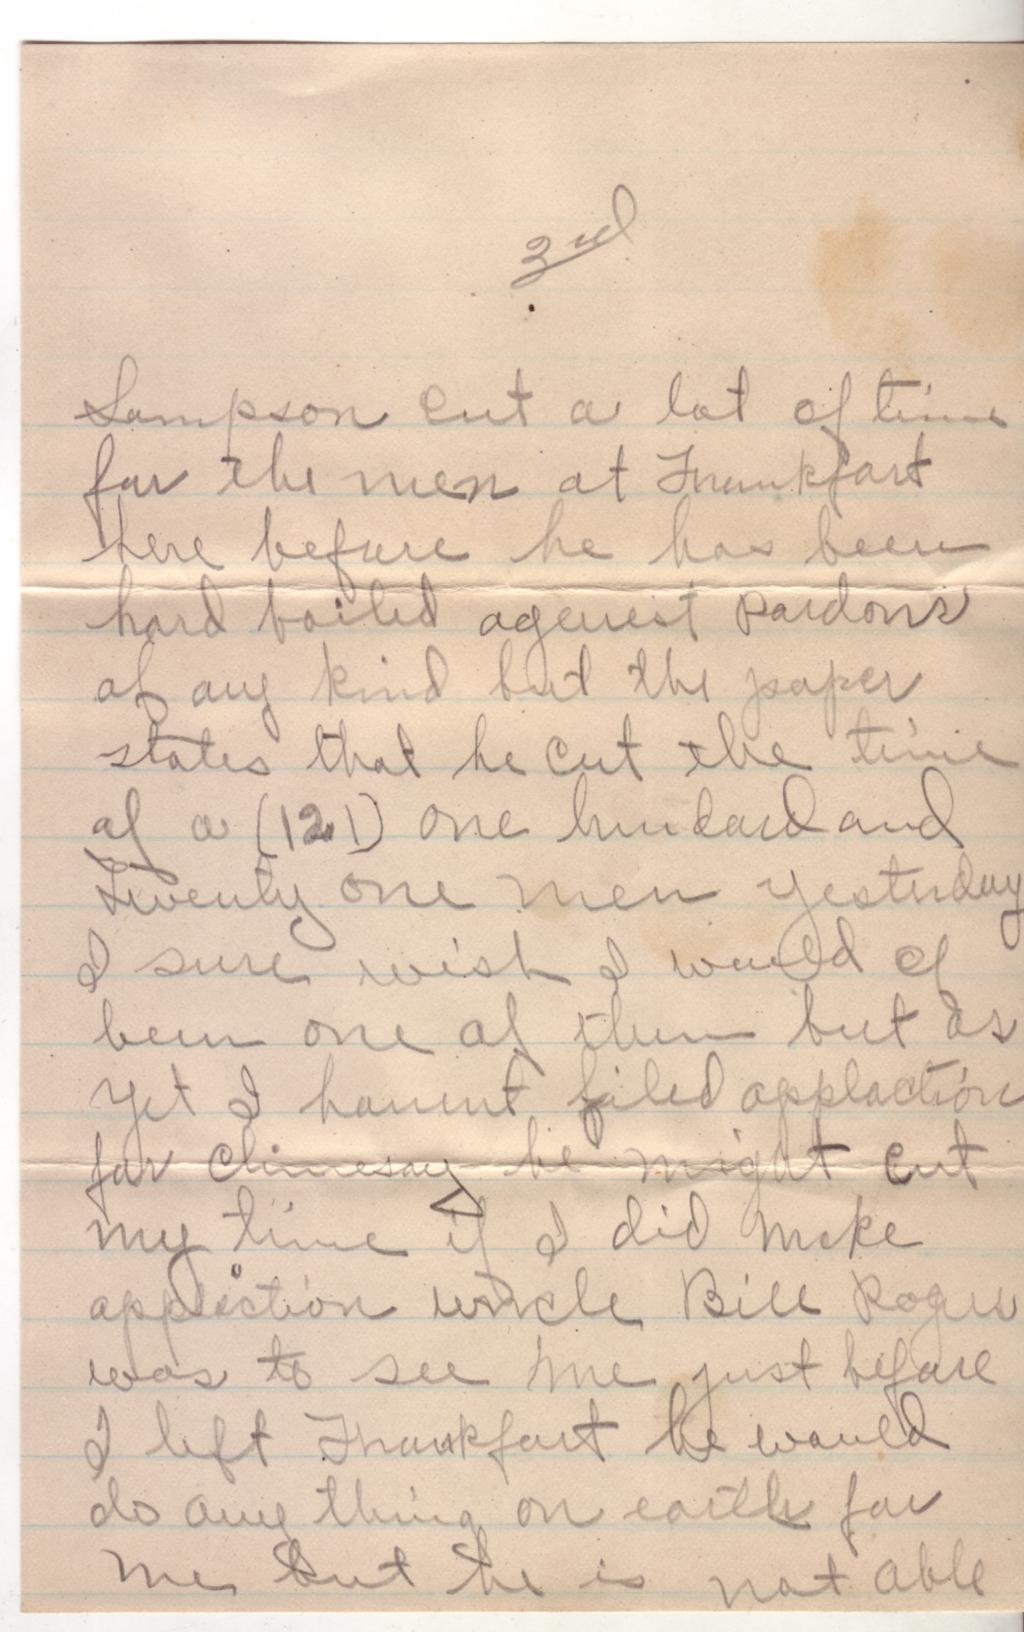 3rd
Sampson cut a lot of time
for the men at Frankfort
here before he has been
hard boiled agenest pardons
of any kind but the paper
states that he cut the time
of a (121) one hundard and
Twenty one men yesterday
I sure wish I would of
been one of them but as
yet I havent filed applaction
for Climesay he might cut
my time if I did make
appliction uncle Bill Roger
was to see me just before
I left Frankfort he would
do any thing on earth for
me but he is not able